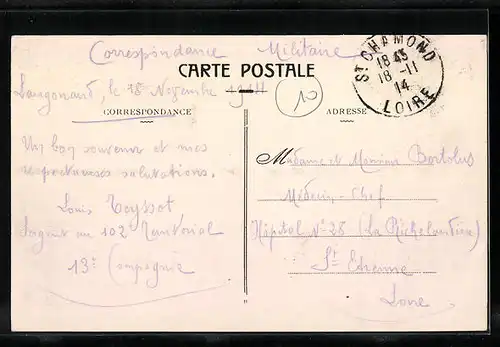 Correspondance Militaire
CARTE POSTALE
ST CHAMOND
18 45
18 - 11
14
LOIRE
le 18 Novembre 1914
10
CORRESPONDANCE
ADRESSE
Un bon souvenir et mes
respectueuses salutations.
Louis Teyssot
Sergent au 102 Territorial
13e Compagnie
Madame et Monsieur Bortolus
Médecin-Chef
Hôpital N° 28 (La Richelandière)
St Etienne
Loire